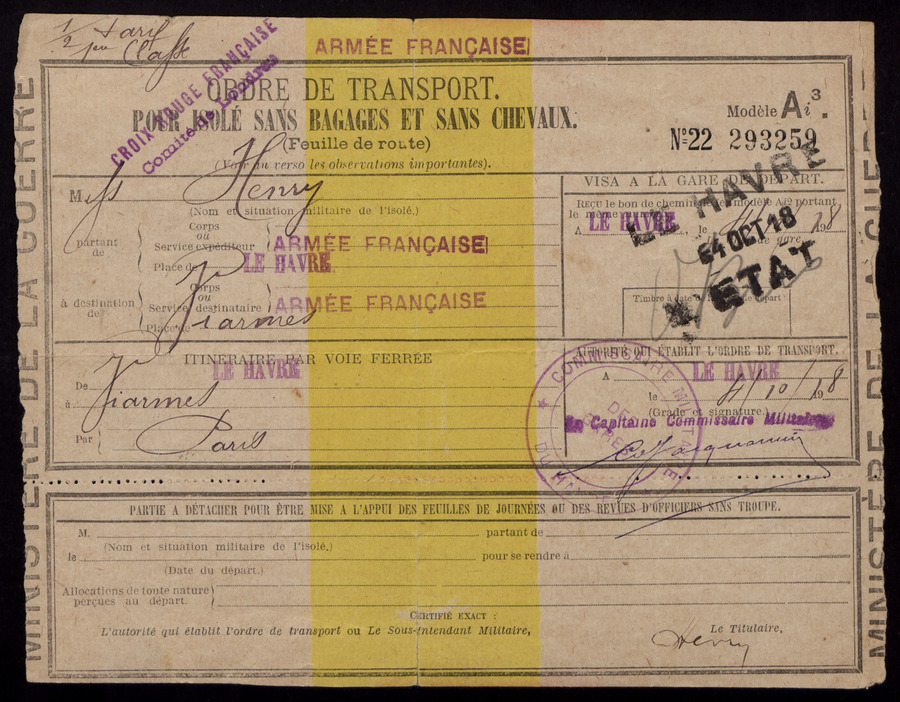 1/2 tarif
1ère Classe
CROIX ROUGE FRANÇAISE
Comité de Londres
ARMÉE FRANÇAISE
ORDRE DE TRANSPORT.
POUR ISOLÉ SANS BAGAGES ET SANS CHEVAUX.
(Feuille de route)
(Voir au verso les observations importantes).
Modèle Ai³.
N°22 293259
Miss Henry
(Nom et situation militaire de l'isolé.)
partant de
Corps ou Service expéditeur
ARMÉE FRANÇAISE
Place de LE HAVRE
à destination de
Corps ou Service destinataire
ARMÉE FRANÇAISE
Place de Viarmes
VISA A LA GARE DE DÉPART.
REÇU le bon de chemin de fer modèle A portant
le même numéro.
A LE HAVRE, le 4 1918
LE HAVRE
4 OCT 18
ETAT
de gare,
Timbre à date de la gare de départ
ITINERAIRE PAR VOIE FERRÉE
De LE HAVRE
à Viarmes
Par Paris
AUTORITÉ QUI ÉTABLIT L'ORDRE DE TRANSPORT.
A LE HAVRE
le 4/10/1918
(Grade et signature.)
Le Capitaine Commissaire Militaire
COMMISSAIRE MILITAIRE
DU HAVRE
PARTIE A DÉTACHER POUR ÊTRE MISE A L'APPUI DES FEUILLES DE JOURNÉES OU DES REVUES D'OFFICIERS SANS TROUPE.
M. partant de
(Nom et situation militaire de l'isolé.)
le pour se rendre à
(Date du départ.)
Allocations de toute nature
perçues au départ.
CERTIFIÉ EXACT :
L'autorité qui établit l'ordre de transport ou Le Sous-Intendant Militaire,
Le Titulaire,
Henry
MINISTÈRE DE LA GUERRE
MINISTÈRE DE LA GUERRE